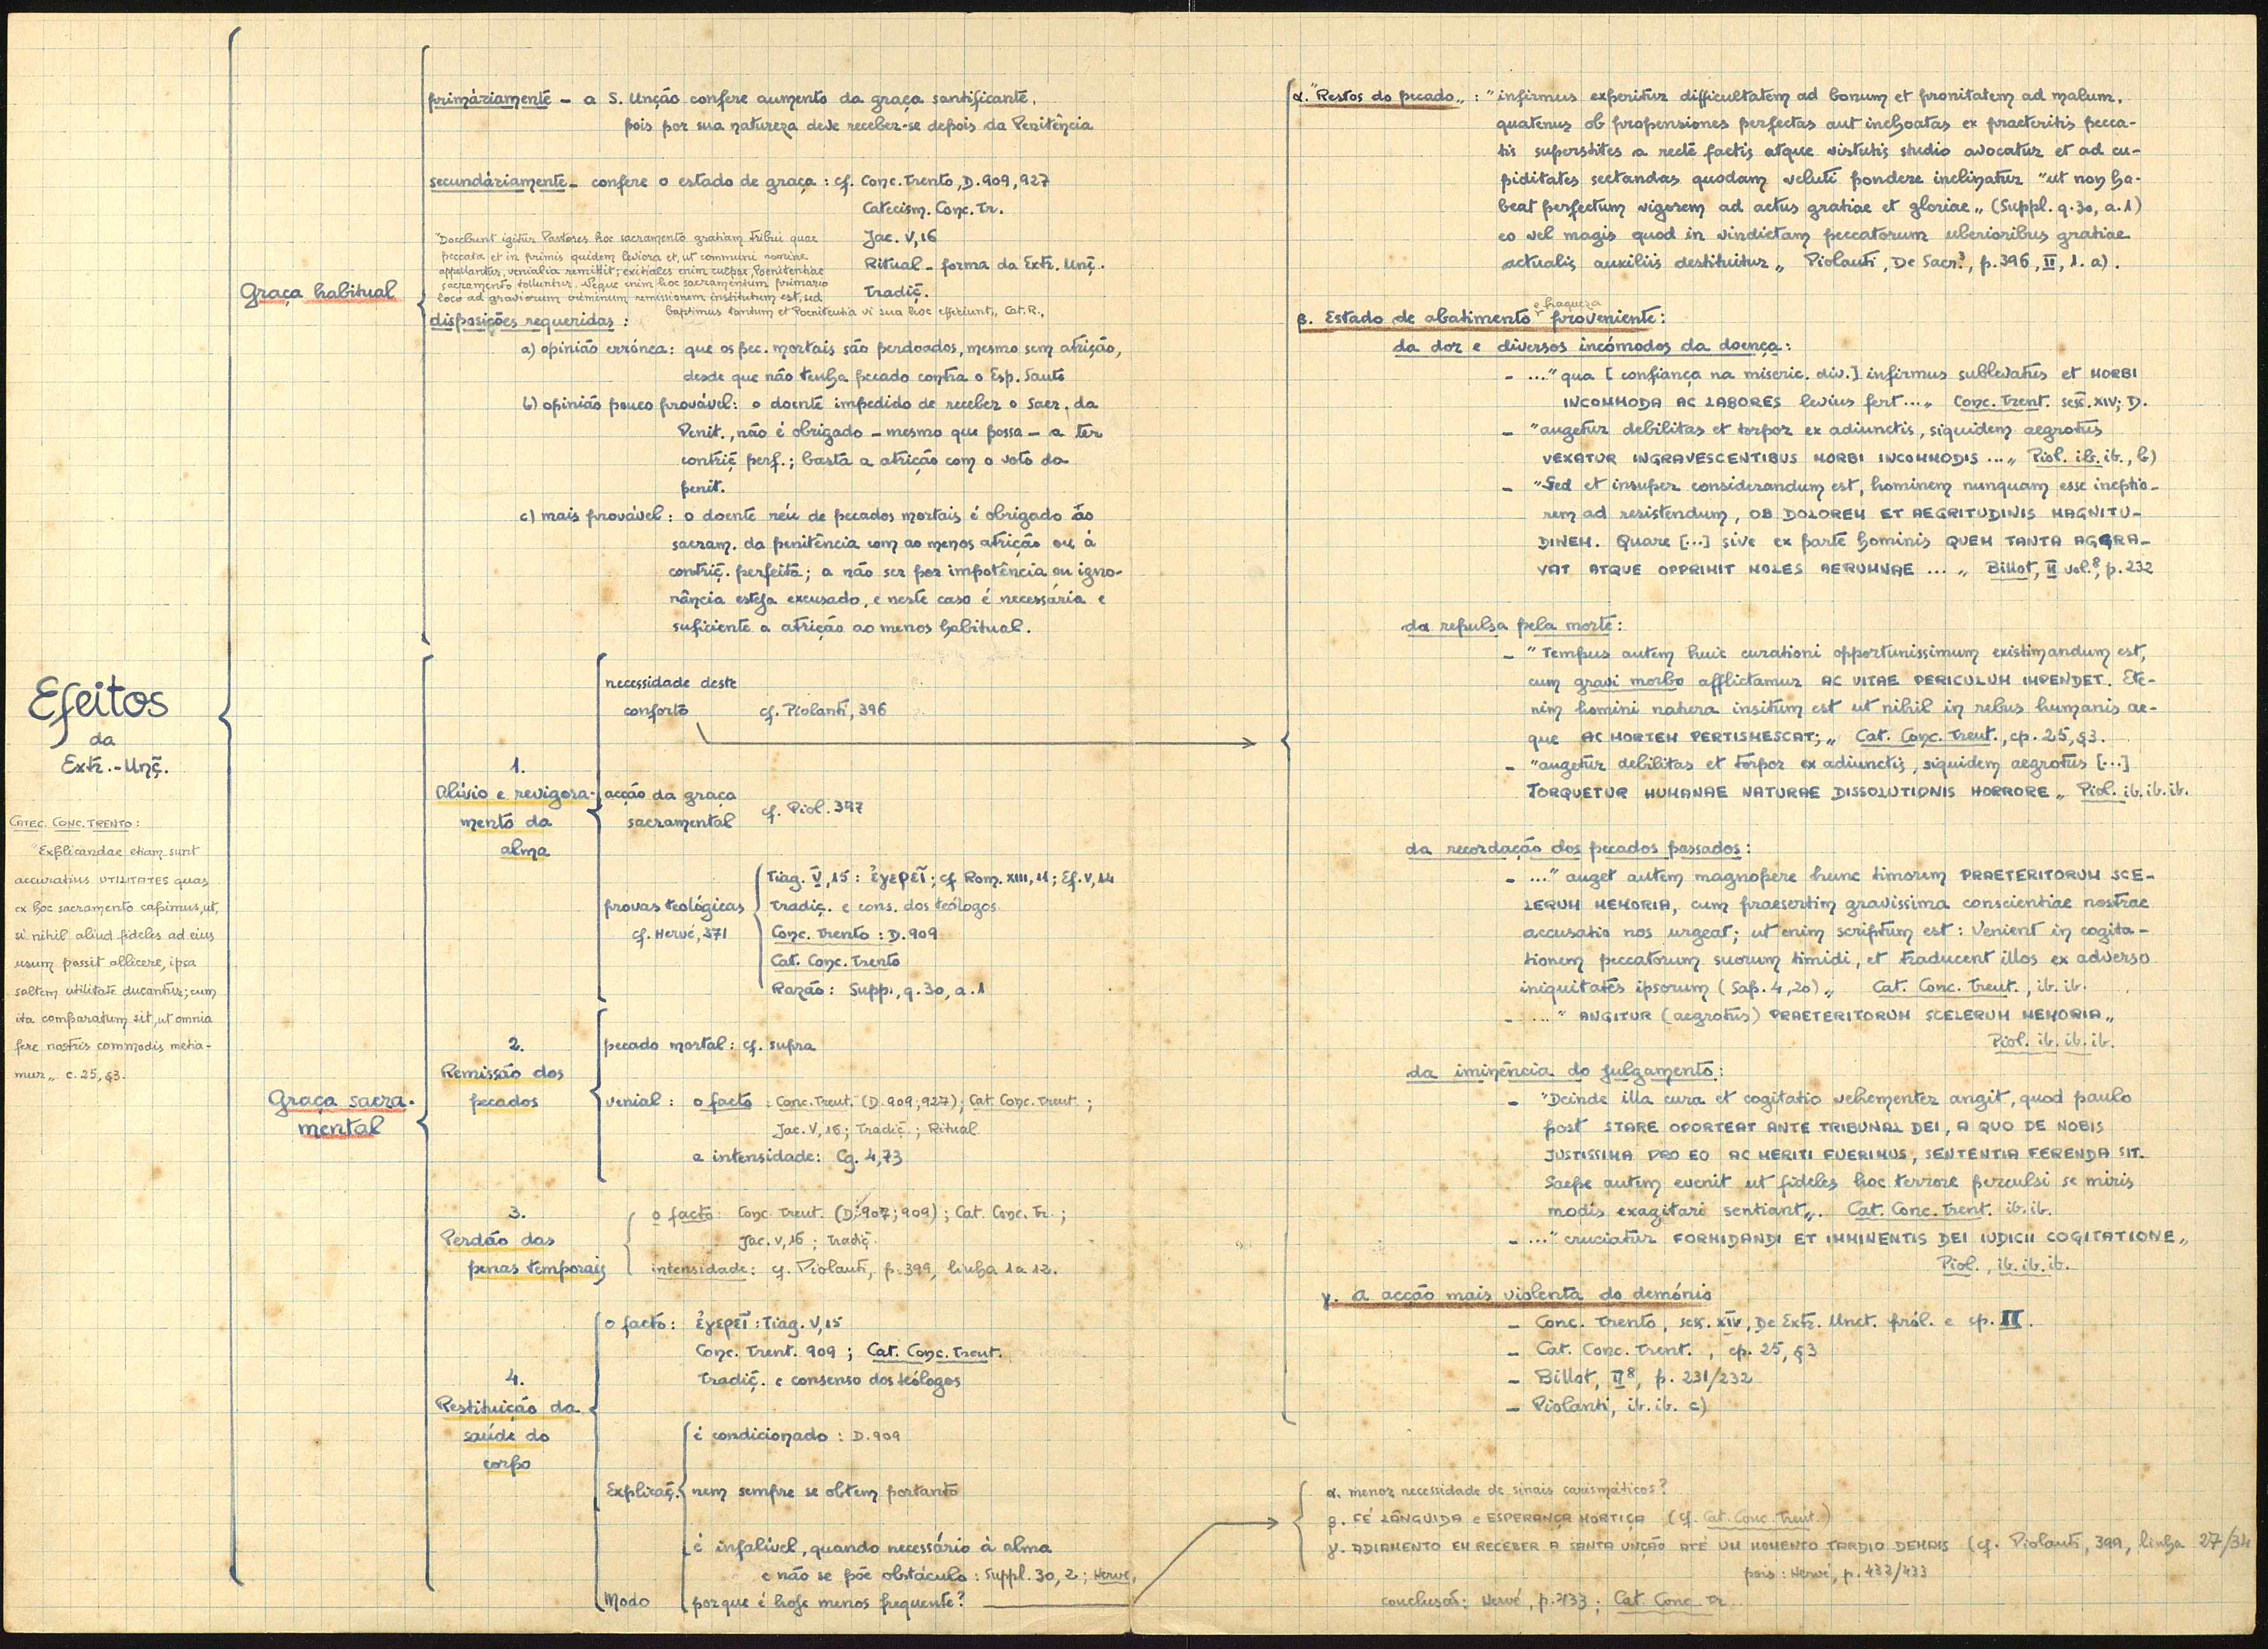 Efeitos
da
Extr.-Unç.
CATEC. CONC. TRENTO:
"Explicandae etiam sunt
accuratius UTILITATES quas
ex hoc sacramento capimus, ut,
si nihil aliud fideles ad eius
usum possit allicere, ipsa
saltem utilitate ducantur; cum
ita comparatum sit, ut omnia
fere nostris commodis metia-
mur„ c. 25, §3.
Graça habitual
primàriamente - a S. Unção confere aumento da graça santificante,
pois por sua natureza deve receber-se depois da Penitência
secundàriamente - confere o estado de graça: cf. Conc. Trento, D. 909, 927
Catecism. Conc. Tr.
Jac. V, 16
Ritual - forma da Extr. Unç.
Tradiç.
"Docebunt igitur Pastores hoc sacramento gratiam tribui quae
peccata et in primis quidem leviora et, ut communi nomine
appellantur, venialia remittit; exitiales enim culpae, Poenitentiae
sacramento tolluntur. Neque enim hoc sacramentum primario
loco ad graviorum criminum remissionem institutum est, sed
baptismus tantum et Poenitentia vi sua hoc efficiunt„ Cat. R.,
disposições requeridas:
a) opinião errónea: que os pec. mortais são perdoados, mesmo sem atrição,
desde que não tenha pecado contra o Esp. Santo
b) opinião pouco provável: o doente impedido de receber o Sacr. da
Penit., não é obrigado - mesmo que possa - a ter
contriç. perf.; basta a atrição com o voto da
penit.
c) mais provável: o doente réu de pecados mortais é obrigado ao
sacram. da penitência com ao menos atrição ou à
contriç. perfeita; a não ser por impotência ou igno-
rância esteja excusado, e neste caso é necessária e
suficiente a atrição ao menos habitual.
Graça sacra-
mental
1.
Alívio e revigora-
mento da
alma
necessidade deste
conforto cf. Piolanti, 396
acção da graça
sacramental cf. Piol. 397
provas teológicas
cf. Hervé, 371
Tiag. V, 15: ἐγερεῖ; cf. Rom. XIII, 11; Ef. V, 14
Tradiç. e cons. dos teólogos
Conc. Trento: D. 909
Cat. Conc. Trento
Razão: Supp., q. 30, a. 1
2.
Remissão dos
pecados
pecado mortal: cf. supra
venial: o facto: Conc. Trent. (D. 909; 927); Cat. Conc. Trent.;
Jac. V, 16; Tradiç.; Ritual
a intensidade: Cg. 4, 73
3.
Perdão das
penas temporais
o facto: Conc. Trent. (D. 907; 909); Cat. Conc. Tr.;
Jac. V, 16; Tradiç.
intensidade: cf. Piolanti, p. 399, linha 1 a 12.
4.
Restituição da
saúde do
corpo
o facto: ἐγερεῖ: Tiag. V, 15
Conc. Trent. 909; Cat. Conc. Trent.
Tradiç. e consenso dos teólogos
Explicaç.
é condicionado: D. 909
nem sempre se obtem portanto
é infalível, quando necessário à alma
e não se põe obstáculo: Suppl. 30, 2; Hervé,
Modo porque é hoje menos frequente?
α. "Restos do pecado„: "infirmus experitur difficultatem ad bonum et pronitatem ad malum,
quatenus ob propensiones perfectas aut inchoatas ex praeteritis pecca-
tis superstites a recte factis atque virtutis studio avocatur et ad cu-
piditates sectandas quodam veluti pondere inclinatur "ut non ha-
beat perfectum vigorem ad actus gratiae et gloriae„ (Suppl. q. 30, a. 1)
eo vel magis quod in vindictam peccatorum uberioribus gratiae
actualis auxiliis destituitur„ Piolanti, De Sacr.³, p. 396, II, 1. a).
β. Estado de abatimento e fraqueza proveniente:
da dor e diversos incómodos da doença:
- ..." qua [confiança na miseric. div.] infirmus sublevatus et MORBI
INCOMMODA AC LABORES levius fert ...„ Conc. Trent. sess. XIV; D.
- "augetur debilitas et torpor ex adiunctis, siquidem aegrotus
VEXATUR INGRAVESCENTIBUS MORBI INCOMMODIS ...„ Piol. ib. ib., b)
- "Sed et insuper considerandum est, hominem nunquam esse ineptio-
rem ad resistendum, OB DOLOREM ET AEGRITUDINIS MAGNITU-
DINEM. Quare [...] sive ex parte hominis QUEM TANTA AGGRA-
VAT ATQUE OPPRIMIT MOLES AERUMNAE ...„ Billot, II vol.⁸, p. 232
da repulsa pela morte:
- "Tempus autem huic curationi opportunissimum existimandum est,
cum gravi morbo afflictamur AC VITAE PERICULUM IMPENDET. Ete-
nim homini natura insitum est ut nihil in rebus humanis ae-
que AC MORTEM PERTISMESCAT;„ Cat. Conc. Trent., cp. 25, §3.
- "augetur debilitas et torpor ex adiunctis, siquidem aegrotus [...]
TORQUETUR HUMANAE NATURAE DISSOLUTIONIS HORRORE„ Piol. ib. ib. ib.
da recordação dos pecados passados:
- ..." auget autem magnopere hunc timorem PRAETERITORUM SCE-
LERUM MEMORIA, cum praesertim gravissima conscientiae nostrae
accusatio nos urgeat; ut enim scriptum est: Venient in cogita-
tionem peccatorum suorum timidi, et traducent illos ex adverso
iniquitates ipsorum (Sap. 4, 20)„ Cat. Conc. Trent., ib. ib.
- ..." ANGITUR (aegrotus) PRAETERITORUM SCELERUM MEMORIA„
Piol. ib. ib. ib.
da iminência do julgamento:
- "Deinde illa cura et cogitatio vehementer angit, quod paulo
post STARE OPORTEAT ANTE TRIBUNAL DEI, A QUO DE NOBIS
JUSTISSIMA PRO EO AC MERITI FUERIMUS, SENTENTIA FERENDA SIT.
Saepe autem evenit ut fideles hoc terrore perculsi se miris
modis exagitari sentiant„. Cat. Conc. Trent. ib. ib.
- ..." cruciatur FORMIDANDI ET IMMINENTIS DEI IUDICII COGITATIONE„
Piol., ib. ib. ib.
γ. a acção mais violenta do demónio
- Conc. Trento, sess. XIV, De Extr. Unct. pról. e cp. II.
- Cat. Conc. Trent., cp. 25, §3
- Billot, II⁸, p. 231/232
- Piolanti, ib. ib. c)
α. menor necessidade de sinais carismáticos?
β. FÉ LÂNGUIDA e ESPERANÇA MORTIÇA (cf. Cat. Conc. Trent.)
γ. ADIAMENTO EM RECEBER A SANTA UNÇÃO ATÉ UM MOMENTO TARDIO DEMAIS (cf. Piolanti, 399, linha 27/34
pois: Hervé, p. 432/433
conclusão: Hervé, p. 433; Cat. Conc. Tr.